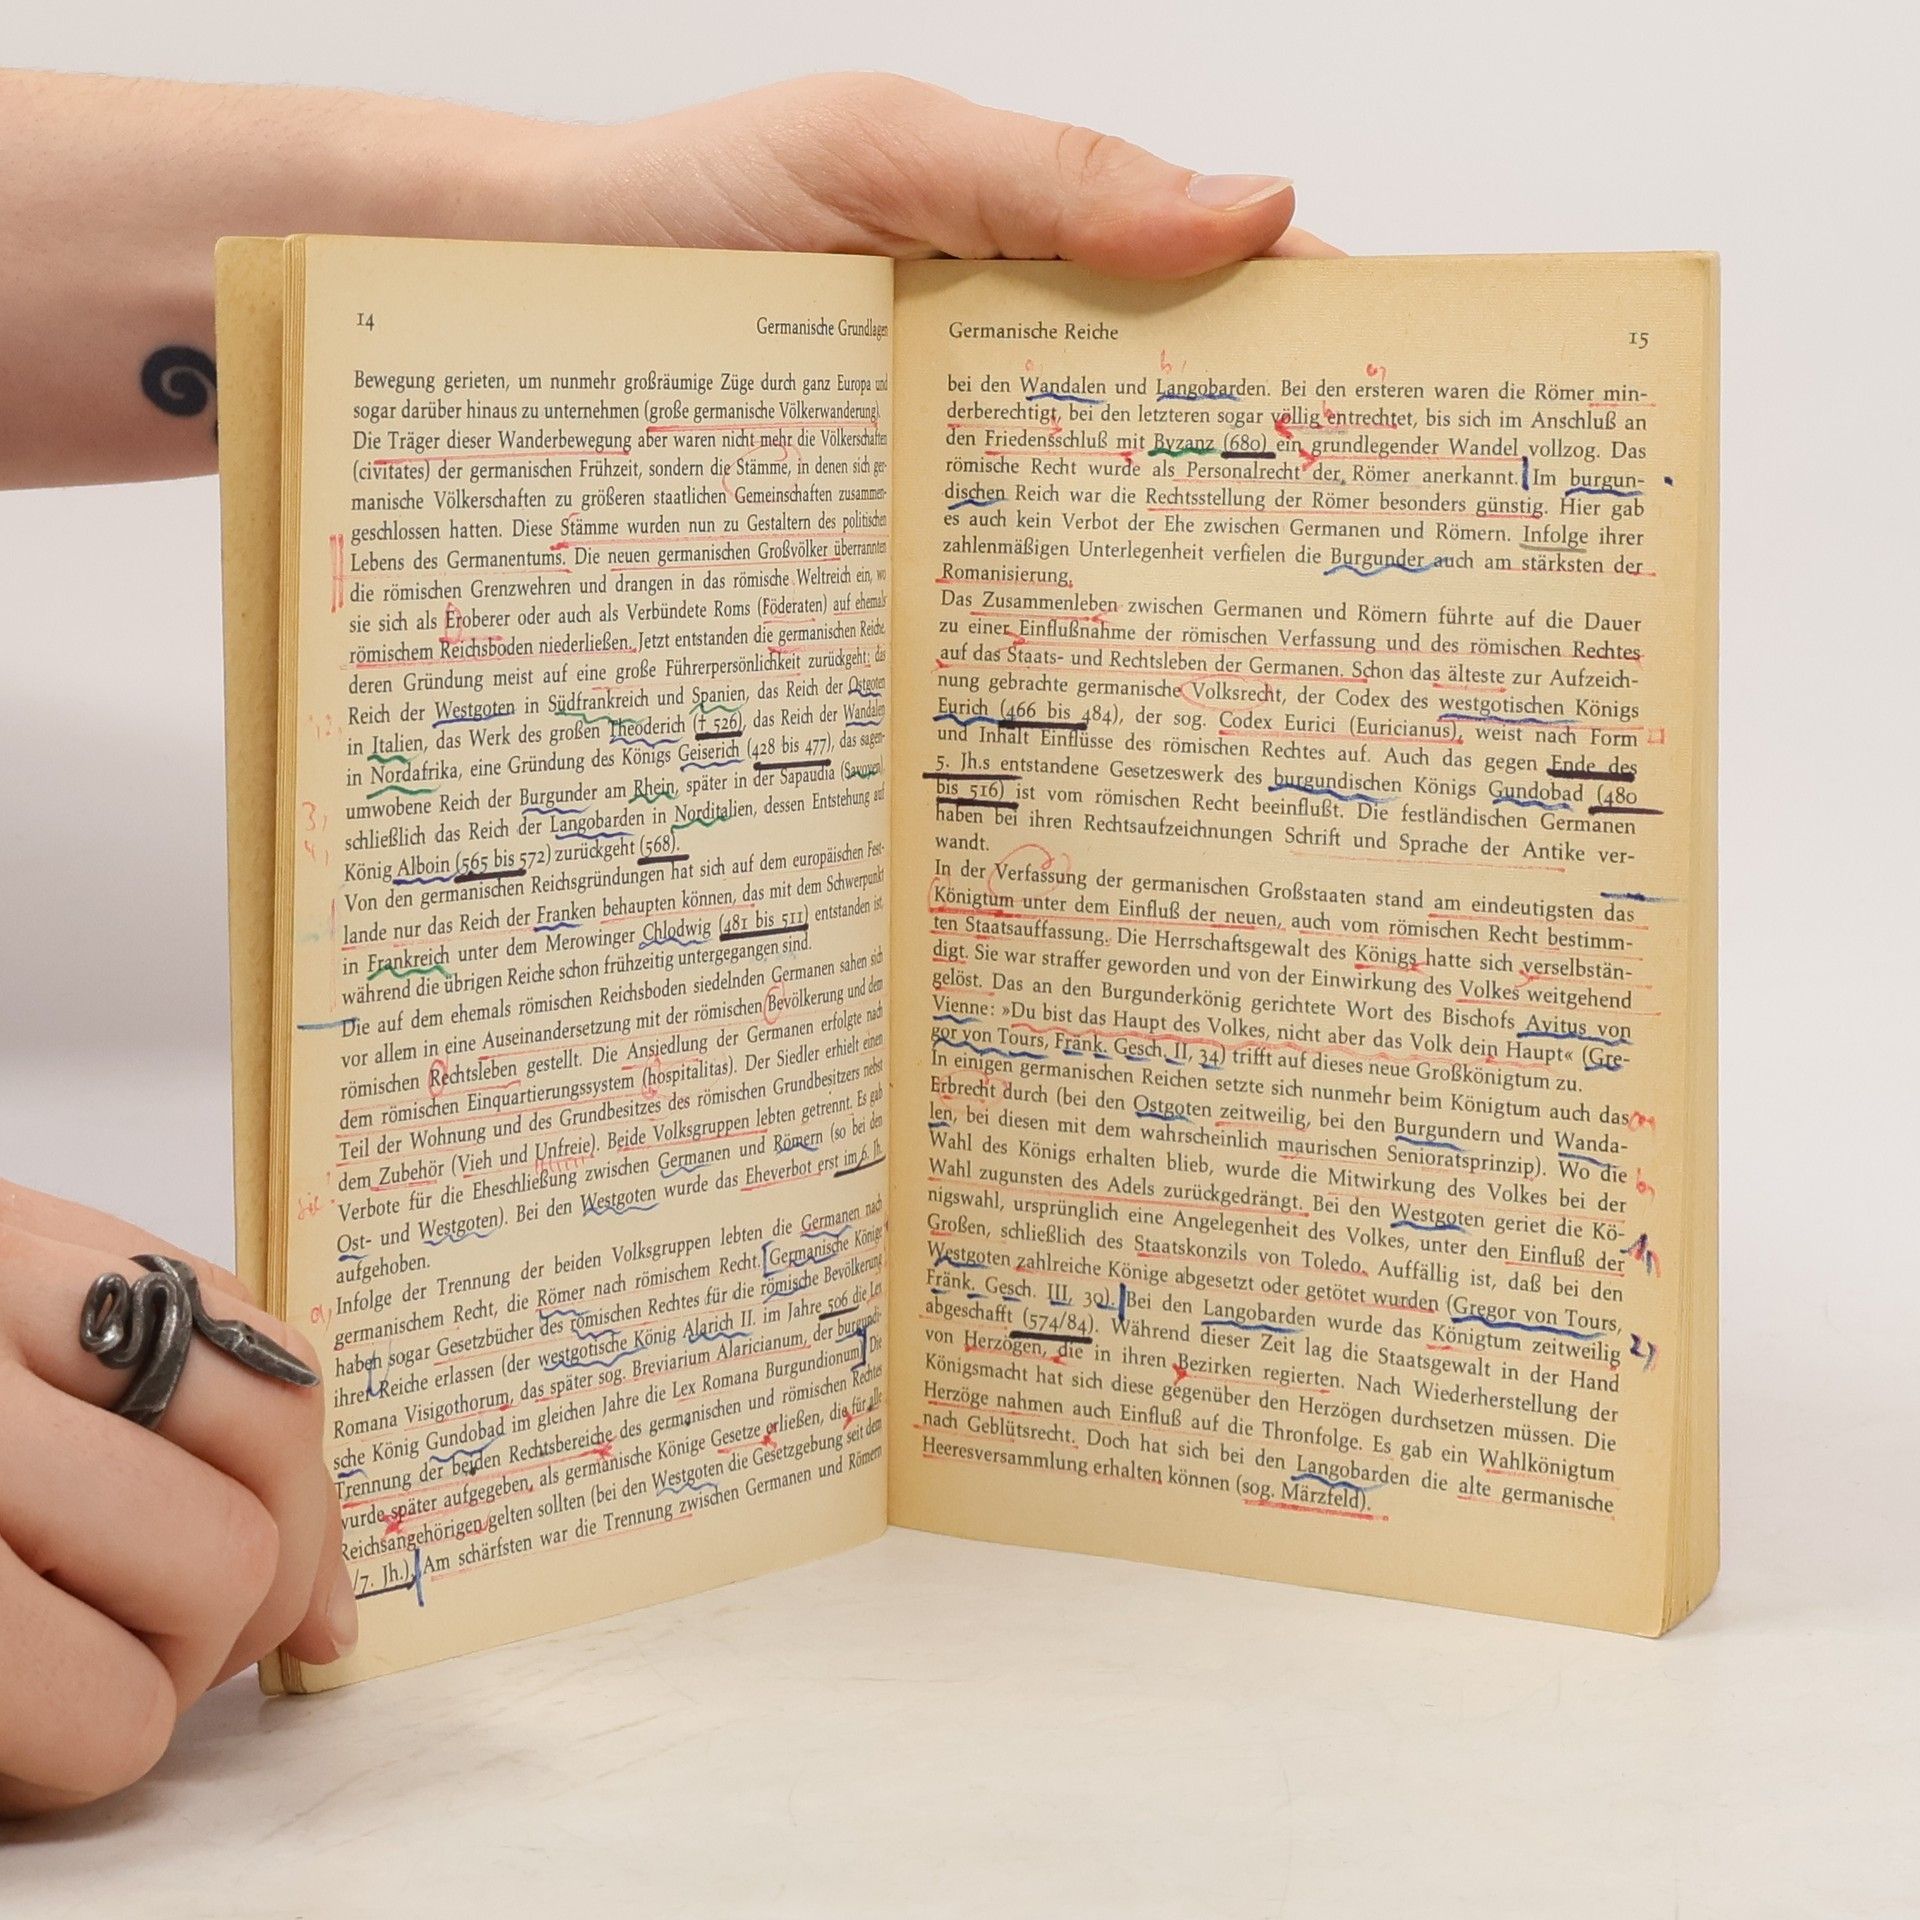 14
Germanische Grundlagen
Bewegung gerieten, um nunmehr großräumige Züge durch ganz Europa und
sogar darüber hinaus zu unternehmen (große germanische Völkerwanderung).
Die Träger dieser Wanderbewegung aber waren nicht mehr die Völkerschaften
(civitates) der germanischen Frühzeit, sondern die Stämme, in denen sich ger-
manische Völkerschaften zu größeren staatlichen Gemeinschaften zusammen-
geschlossen hatten. Diese Stämme wurden nun zu Gestaltern des politischen
Lebens des Germanentums. Die neuen germanischen Großvölker überrannten
die römischen Grenzwehren und drangen in das römische Weltreich ein, wo
sie sich als Eroberer oder auch als Verbündete Roms (Föderaten) auf ehemals
römischem Reichsboden niederließen. Jetzt entstanden die germanischen Reiche,
deren Gründung meist auf eine große Führerpersönlichkeit zurückgeht: das
Reich der Westgoten in Südfrankreich und Spanien, das Reich der Ostgoten
in Italien, das Werk des großen Theoderich († 526), das Reich der Wandalen
in Nordafrika, eine Gründung des Königs Geiserich (428 bis 477), das sagen-
umwobene Reich der Burgunder am Rhein, später in der Sapaudia (Savoyen),
schließlich das Reich der Langobarden in Norditalien, dessen Entstehung auf
König Alboin (565 bis 572) zurückgeht (568).
Von den germanischen Reichsgründungen hat sich auf dem europäischen Fest-
lande nur das Reich der Franken behaupten können, das mit dem Schwerpunkt
in Frankreich unter dem Merowinger Chlodwig (481 bis 511) entstanden ist,
während die übrigen Reiche schon frühzeitig untergegangen sind.
Die auf dem ehemals römischen Reichsboden siedelnden Germanen sahen sich
vor allem in eine Auseinandersetzung mit der römischen Bevölkerung und dem
römischen Rechtsleben gestellt. Die Ansiedlung der Germanen erfolgte nach
dem römischen Einquartierungssystem (hospitalitas). Der Siedler erhielt einen
Teil der Wohnung und des Grundbesitzes des römischen Grundbesitzers nebst
dem Zubehör (Vieh und Unfreie). Beide Volksgruppen lebten getrennt. Es gab
Verbote für die Eheschließung zwischen Germanen und Römern (so bei den
Ost- und Westgoten). Bei den Westgoten wurde das Eheverbot erst im 6. Jh.
aufgehoben.
Infolge der Trennung der beiden Volksgruppen lebten die Germanen nach
germanischem Recht, die Römer nach römischem Recht. Germanische Könige
haben sogar Gesetzbücher des römischen Rechtes für die römische Bevölkerung
ihrer Reiche erlassen (der westgotische König Alarich II. im Jahre 506 die Lex
Romana Visigothorum, das später sog. Breviarium Alaricianum, der burgundi-
sche König Gundobad im gleichen Jahre die Lex Romana Burgundionum). Die
Trennung der beiden Rechtsbereiche des germanischen und römischen Rechtes
wurde später aufgegeben, als germanische Könige Gesetze erließen, die für alle
Reichsangehörigen gelten sollten (bei den Westgoten die Gesetzgebung seit dem
/7. Jh.). Am schärfsten war die Trennung zwischen Germanen und Römern
Germanische Reiche
15
bei den Wandalen und Langobarden. Bei den ersteren waren die Römer min-
derberechtigt, bei den letzteren sogar völlig entrechtet, bis sich im Anschluß an
den Friedensschluß mit Byzanz (680) ein grundlegender Wandel vollzog. Das
römische Recht wurde als Personalrecht der Römer anerkannt. Im burgun-
dischen Reich war die Rechtsstellung der Römer besonders günstig. Hier gab
es auch kein Verbot der Ehe zwischen Germanen und Römern. Infolge ihrer
zahlenmäßigen Unterlegenheit verfielen die Burgunder auch am stärksten der
Romanisierung.
Das Zusammenleben zwischen Germanen und Römern führte auf die Dauer
zu einer Einflußnahme der römischen Verfassung und des römischen Rechtes
auf das Staats- und Rechtsleben der Germanen. Schon das älteste zur Aufzeich-
nung gebrachte germanische Volksrecht, der Codex des westgotischen Königs
Eurich (466 bis 484), der sog. Codex Eurici (Euricianus), weist nach Form
und Inhalt Einflüsse des römischen Rechtes auf. Auch das gegen Ende des
5. Jh.s entstandene Gesetzeswerk des burgundischen Königs Gundobad (480
bis 516) ist vom römischen Recht beeinflußt. Die festländischen Germanen
haben bei ihren Rechtsaufzeichnungen Schrift und Sprache der Antike ver-
wandt.
In der Verfassung der germanischen Großstaaten stand am eindeutigsten das
Königtum unter dem Einfluß der neuen, auch vom römischen Recht bestimm-
ten Staatsauffassung. Die Herrschaftsgewalt des Königs hatte sich verselbstän-
digt. Sie war straffer geworden und von der Einwirkung des Volkes weitgehend
gelöst. Das an den Burgunderkönig gerichtete Wort des Bischofs Avitus von
Vienne: »Du bist das Haupt des Volkes, nicht aber das Volk dein Haupt« (Gre-
gor von Tours, Fränk. Gesch. II, 34) trifft auf dieses neue Großkönigtum zu.
In einigen germanischen Reichen setzte sich nunmehr beim Königtum auch das
Erbrecht durch (bei den Ostgoten zeitweilig, bei den Burgundern und Wanda-
len, bei diesen mit dem wahrscheinlich maurischen Senioratsprinzip). Wo die
Wahl des Königs erhalten blieb, wurde die Mitwirkung des Volkes bei der
Wahl zugunsten des Adels zurückgedrängt. Bei den Westgoten geriet die Kö-
nigswahl, ursprünglich eine Angelegenheit des Volkes, unter den Einfluß der
Großen, schließlich des Staatskonzils von Toledo. Auffällig ist, daß bei den
Westgoten zahlreiche Könige abgesetzt oder getötet wurden (Gregor von Tours,
Fränk. Gesch. III, 30). Bei den Langobarden wurde das Königtum zeitweilig
abgeschafft (574/84). Während dieser Zeit lag die Staatsgewalt in der Hand
von Herzögen, die in ihren Bezirken regierten. Nach Wiederherstellung der
Königsmacht hat sich diese gegenüber den Herzögen durchsetzen müssen. Die
Herzöge nahmen auch Einfluß auf die Thronfolge. Es gab ein Wahlkönigtum
nach Geblütsrecht. Doch hat sich bei den Langobarden die alte germanische
Heeresversammlung erhalten können (sog. Märzfeld).